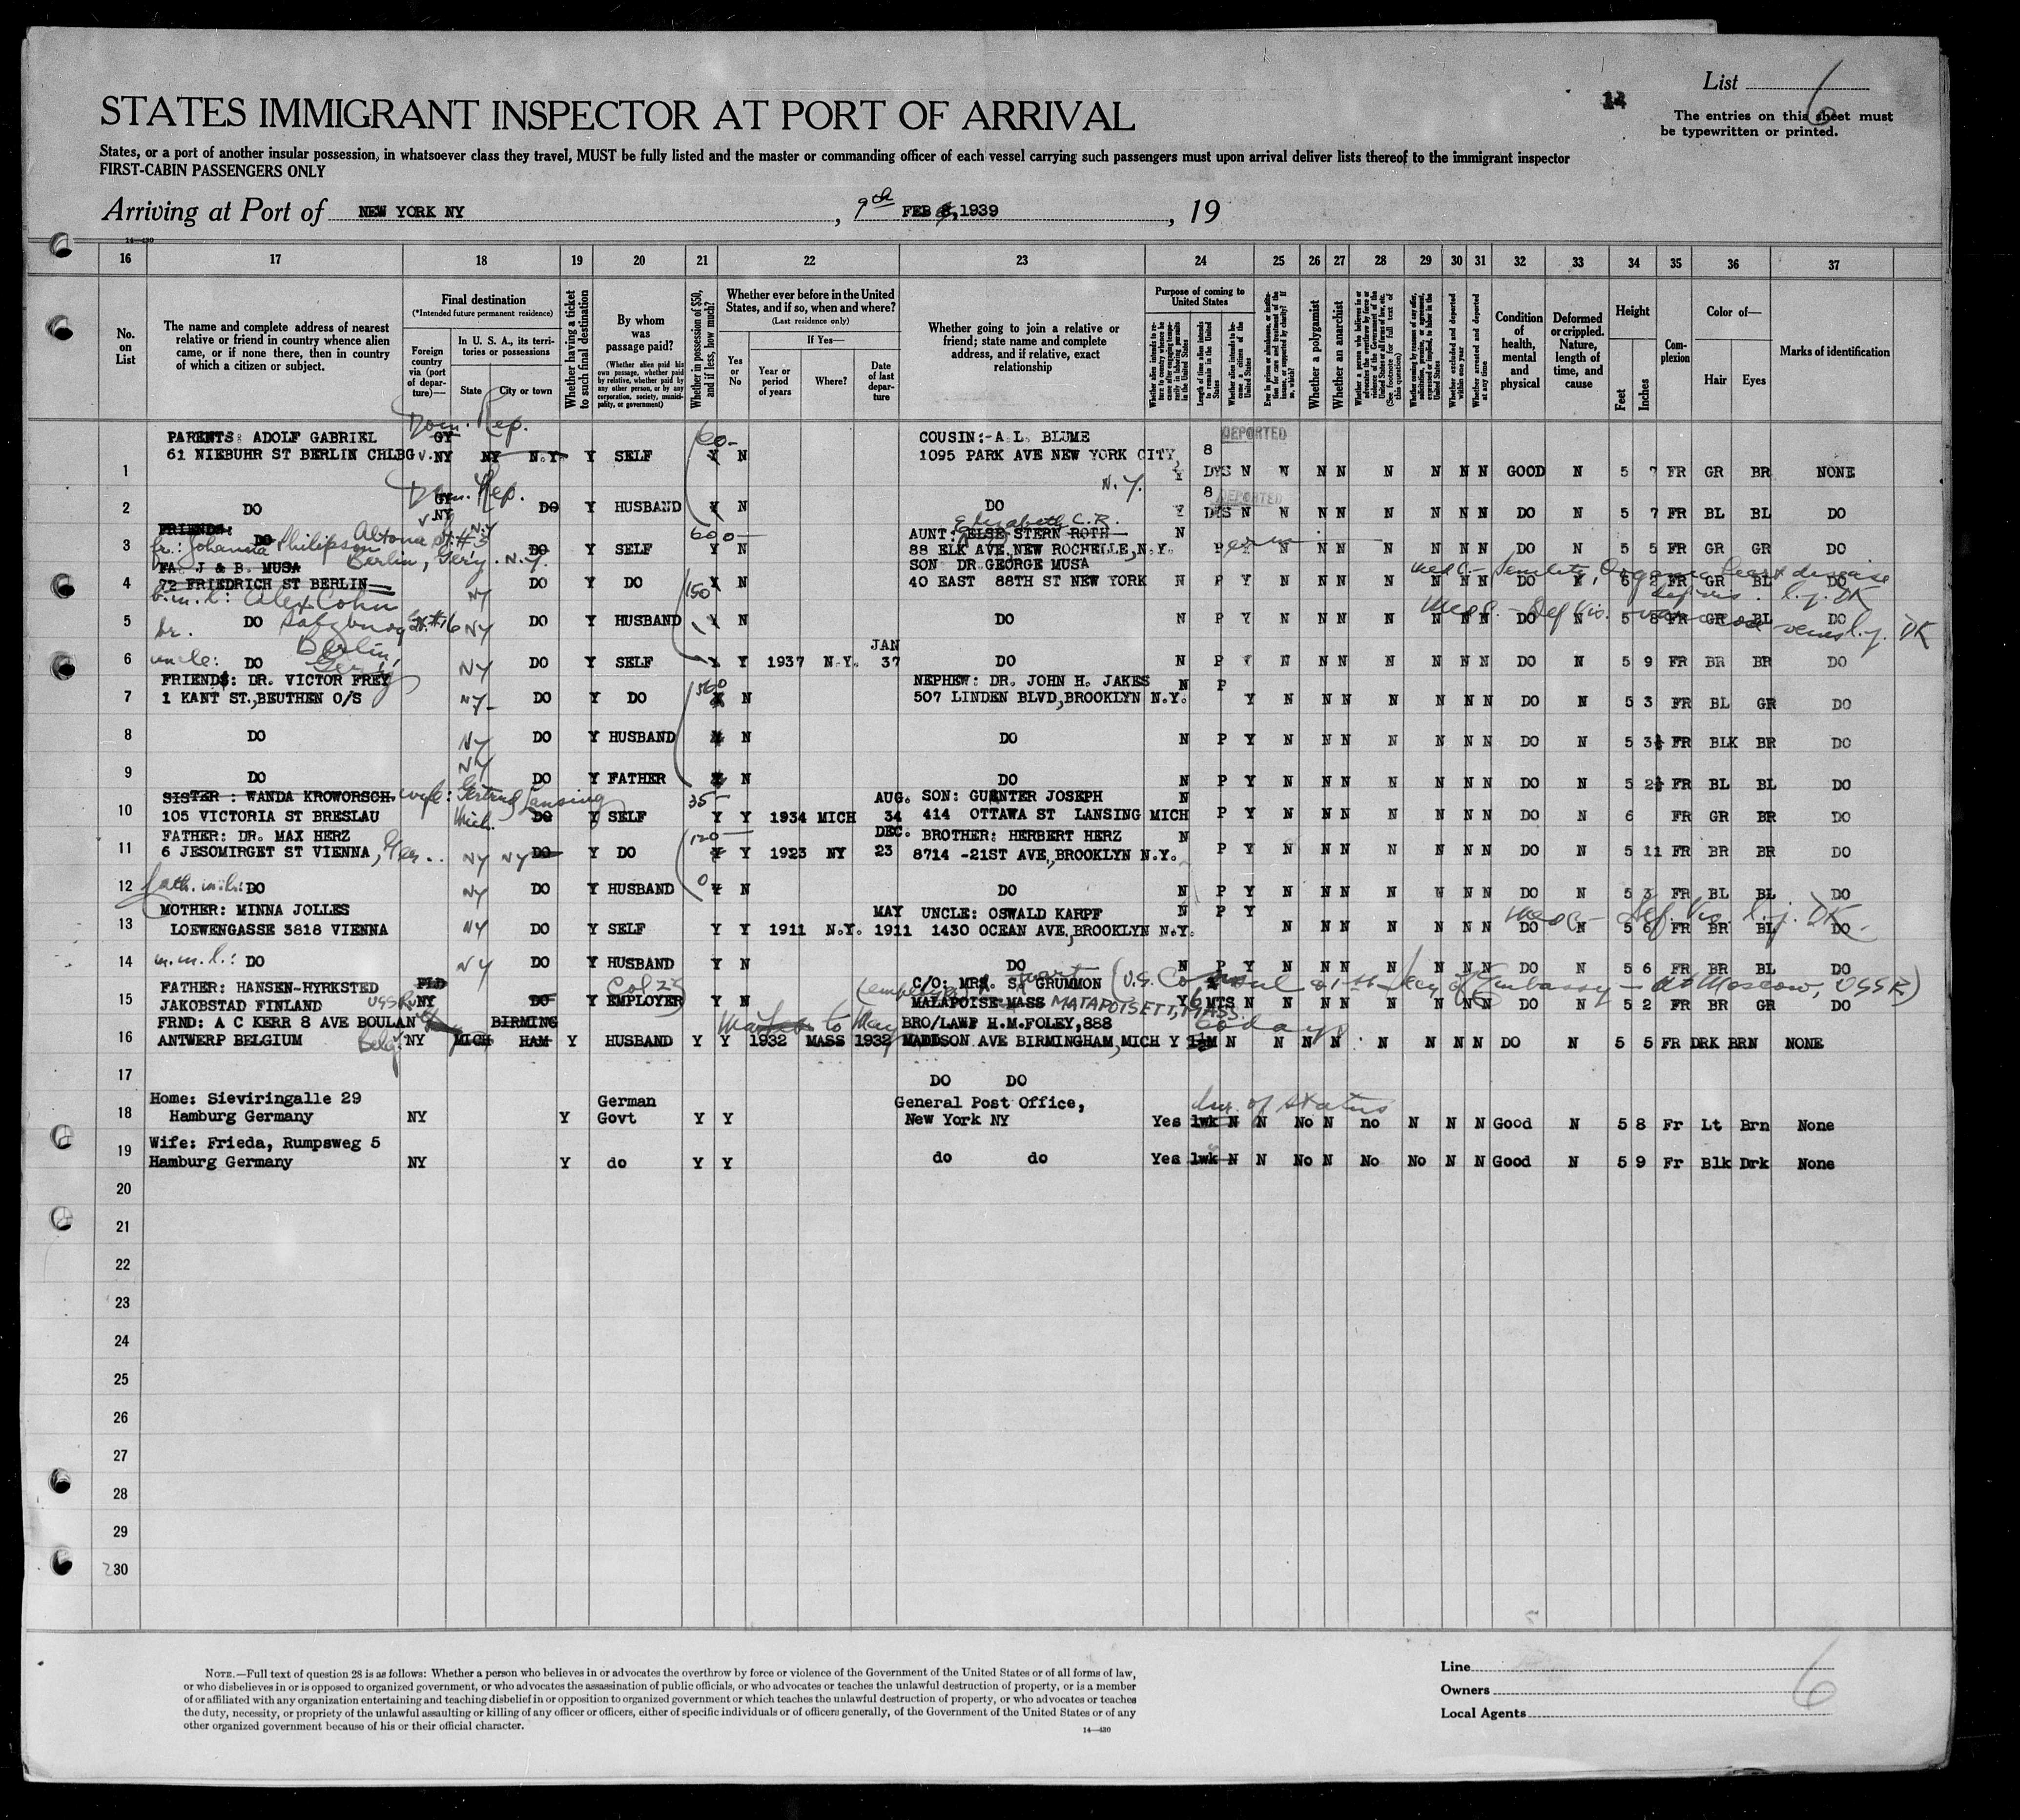 List 6
14
The entries on this sheet must
be typewritten or printed.
STATES IMMIGRANT INSPECTOR AT PORT OF ARRIVAL
States, or a port of another insular possession, in whatsoever class they travel, MUST be fully listed and the master or commanding officer of each vessel carrying such passengers must upon arrival deliver lists thereof to the immigrant inspector
FIRST-CABIN PASSENGERS ONLY
Arriving at Port of NEW YORK NY, 9th FEB 8, 1939, 19
14-430
16 17 18 19 20 21 22 23 24 25 26 27 28 29 30 31 32 33 34 35 36 37
No. on List
The name and complete address of nearest relative or friend in country whence alien came, or if none there, then in country of which a citizen or subject.
Final destination
(*Intended future permanent residence)
Foreign country via (port of departure)—
In U. S. A., its territories or possessions
State
City or town
Whether having a ticket to such final destination
By whom was passage paid?
(Whether alien paid his own passage, whether paid by relative, whether paid by any other person, or by any corporation, society, municipality, or government)
Whether in possession of $50, and if less, how much?
Whether ever before in the United States, and if so, when and where?
(Last residence only)
Yes or No
If Yes—
Year or period of years
Where?
Date of last departure
Whether going to join a relative or friend; state name and complete address, and if relative, exact relationship
Purpose of coming to United States
Length of time alien intends to remain in the United States
Whether alien intends to become a citizen of the United States
Whether a polygamist
Whether an anarchist
Whether excluded and deported within one year
Whether arrested and deported at any time
Condition of health, mental and physical
Deformed or crippled. Nature, length of time, and cause
Height
Feet
Inches
Complexion
Color of—
Hair
Eyes
Marks of identification
Dom. Rep.
PARENTS: ADOLF GABRIEL GY 60- COUSIN:-A.L. BLUME DEPORTED
1 61 NIEBUHR ST BERLIN CHLBG v. NY NY N.Y. Y SELF Y N 1095 PARK AVE NEW YORK CITY, N.Y. Y 8 DYS N N N N N N N N GOOD N 5 7 FR GR BR NONE
Dom. Rep.
2 DO GY v NY DO Y HUSBAND Y N DO Y 8 DYS N N N N N N N N DO N 5 7 FR BL BL DO
DEPORTED
FRIENDS: Elizabeth C.R.
3 DO fr.: Johanna Philipson Altona St. #3 Berlin, Ger'y. N.Y. DO Y SELF 600- Y N AUNT: ELSE STERN ROTH
88 ELK AVE, NEW ROCHELLE, N.Y. N P N N N N N N N DO N 5 5 FR GR GR DO
FA J & B. MUSA SON DR GEORGE MUSA
4 72 FRIEDRICH ST BERLIN DO Y DO 150 Y N 40 EAST 88TH ST NEW YORK N P Y N N N N N N N DO N FR GR BL DO
b.m.l: Alex Cohn NY
5 DO Salzburg St. #16 Berlin, Ger'y NY DO Y HUSBAND Y N DO N P Y N N N N N N N DO N 5 8 FR GR BL DO
6 uncle: DO NY DO Y SELF Y Y 1937 N.Y. JAN 37 DO N P Y N N N N N N N DO N 5 9 FR BR BR DO
FRIENDS: DR. VICTOR FREY 560 NEPHEW: DR. JOHN H. JAKES
7 1 KANT ST., BEUTHEN O/S NY- DO Y DO Y N 507 LINDEN BLVD, BROOKLYN N.Y. N P Y N N N N N N N DO N 5 3 FR BL GR DO
8 DO NY DO Y HUSBAND Y N DO N P Y N N N N N N N DO N 5 3½ FR BLK BR DO
9 DO NY DO Y FATHER Y N DO N P Y N N N N N N N DO N 5 2½ FR BL BL DO
SISTER : WANDA KROWORSCH. wife: Gertrud Lansing 35- AUG. SON: GUENTER JOSEPH
10 105 VICTORIA ST BRESLAU Mich. DO Y SELF Y Y 1934 MICH 34 414 OTTAWA ST LANSING MICH N P Y N N N N N N N DO N 6 FR GR BR DO
FATHER: DR. MAX HERZ 120- DEC. BROTHER: HERBERT HERZ
11 6 JESOMIRGET ST VIENNA, Ger. NY NY DO Y DO Y Y 1923 NY 23 8714 -21ST AVE, BROOKLYN N.Y. N P Y N N N N N N N DO N 5 11 FR BR BR DO
12 fath. in l.: DO NY DO Y HUSBAND 0 Y N DO N P Y N N N N N N N DO N 5 3 FR BL BL DO
MOTHER: MINNA JOLLES MAY UNCLE: OSWALD KARPF
13 LOEWENGASSE 3818 VIENNA NY DO Y SELF Y Y 1911 N.Y. 1911 1430 OCEAN AVE, BROOKLYN N.Y. N P Y N N N N N N N DO N 5 6 FR BR BL DO
14 m.m.l.: DO NY DO Y HUSBAND Y N DO N P Y N N N N N N N DO N 5 6 FR BR BL DO
FATHER: HANSEN-HYRKSTED FLD Col 23 C/O: MRS. S. GRUMMON (U.S. Consul & 1st Sec'y of Embassy - at Moscow, USSR)
15 JAKOBSTAD FINLAND USSR NY DO Y EMPLOYER Y N (employer MALAPOISE MASS MATAPOISETT, MASS. Y 6 MTS N N N N N N N N DO N 5 2 FR BR GR DO
FRND: A C KERR 8 AVE BOULAN BIRMING to May BRO/LAWF H.M.FOLEY,888 60 days
16 ANTWERP BELGIUM Belg. NY MICH HAM Y HUSBAND Y Y 1932 MASS 1932 MADISON AVE BIRMINGHAM, MICH Y 1½M N N N N N N N N DO N 5 5 FR DRK BRN NONE
17 DO DO
Home: Sieviringalle 29 German General Post Office, dur. of status
18 Hamburg Germany NY Y Govt Y Y New York NY Yes 1wk N N No N no N N N Good N 5 8 Fr Lt Brn None
Wife: Frieda, Rumpsweg 5
19 Hamburg Germany NY Y do Y Y do do Yes 1wk N N No N No No N N Good N 5 9 Fr Blk Drk None
20
21
22
23
24
25
26
27
28
29
30
NOTE.—Full text of question 28 is as follows: Whether a person who believes in or advocates the overthrow by force or violence of the Government of the United States or of all forms of law,
or who disbelieves in or is opposed to organized government, or who advocates the assassination of public officials, or who advocates or teaches the unlawful destruction of property, or is a member
of or affiliated with any organization entertaining and teaching disbelief in or opposition to organized government or which teaches the unlawful destruction of property, or who advocates or teaches
the duty, necessity, or propriety of the unlawful assaulting or killing of any officer or officers, either of specific individuals or of officers generally, of the Government of the United States or of any
other organized government because of his or their official character.
14-430
Line
Owners
Local Agents
6